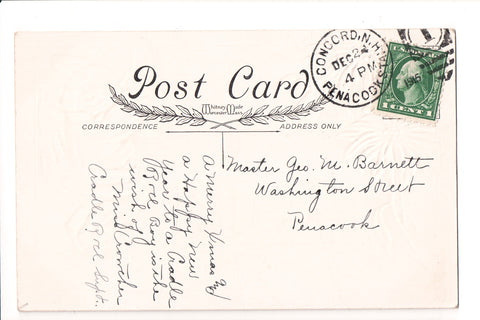 CONCORD, N.H.
DEC 24
4 PM
PENACOOK
1
1 CENT 1
Post Card
Whitney Made
Worcester, Mass
CORRESPONDENCE
ADDRESS ONLY
Master Geo. M. Barnett
Washington Street
Penacook
A Merry Xmas and
a Happy New
Year to a Cradle
Roll Boy is the
wish of
Miss Crowther
Cradle Roll Supt.